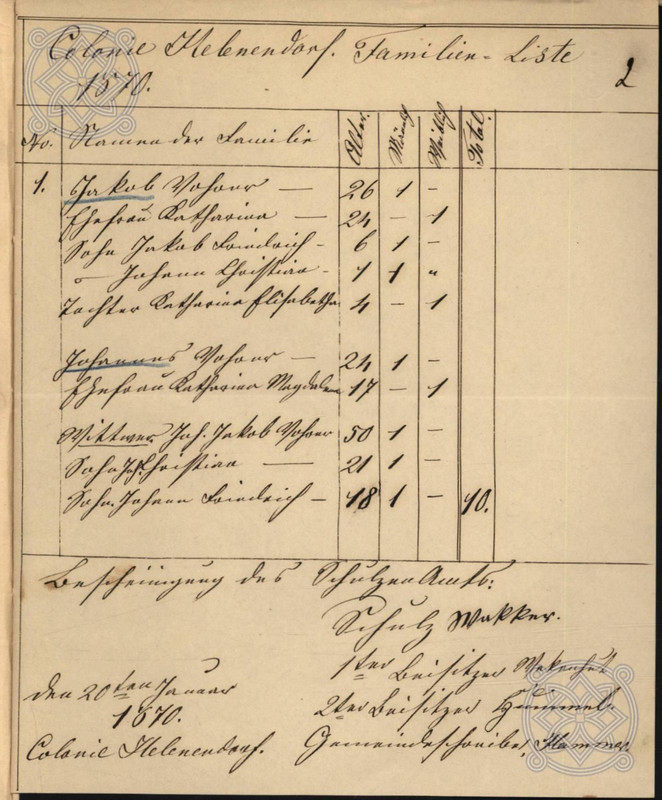 Colonie Helenendorf. Familien-Liste
1870.
2
No. Namen der Familie Alter. Mänlich Weiblich Total.
1. Jakob Vohrer — 26 1 –
Ehefrau Katharina — 24 – 1
Sohn Jakob Friedrich – 6 1 –
– Johann Christian – 1 1 "
Tochter Katharina Elisabetha 4 – 1
Johannes Vohrer — 24 1 –
Ehefrau Katharina Magdalena 17 – 1
Wittwer Joh. Jakob Vohrer 50 1 –
Sohn Joh. Christian — 21 1 –
Sohn Johann Friedrich – 18 1 – 10.
Bescheinigung des Schulzen Amts:
Schulz Wakker.
1ter Beisitzer
den 20ten Januar
2ter Beisitzer Hummel.
1870.
Colonie Helenendorf. Gemeindeschreiber, Hammer.